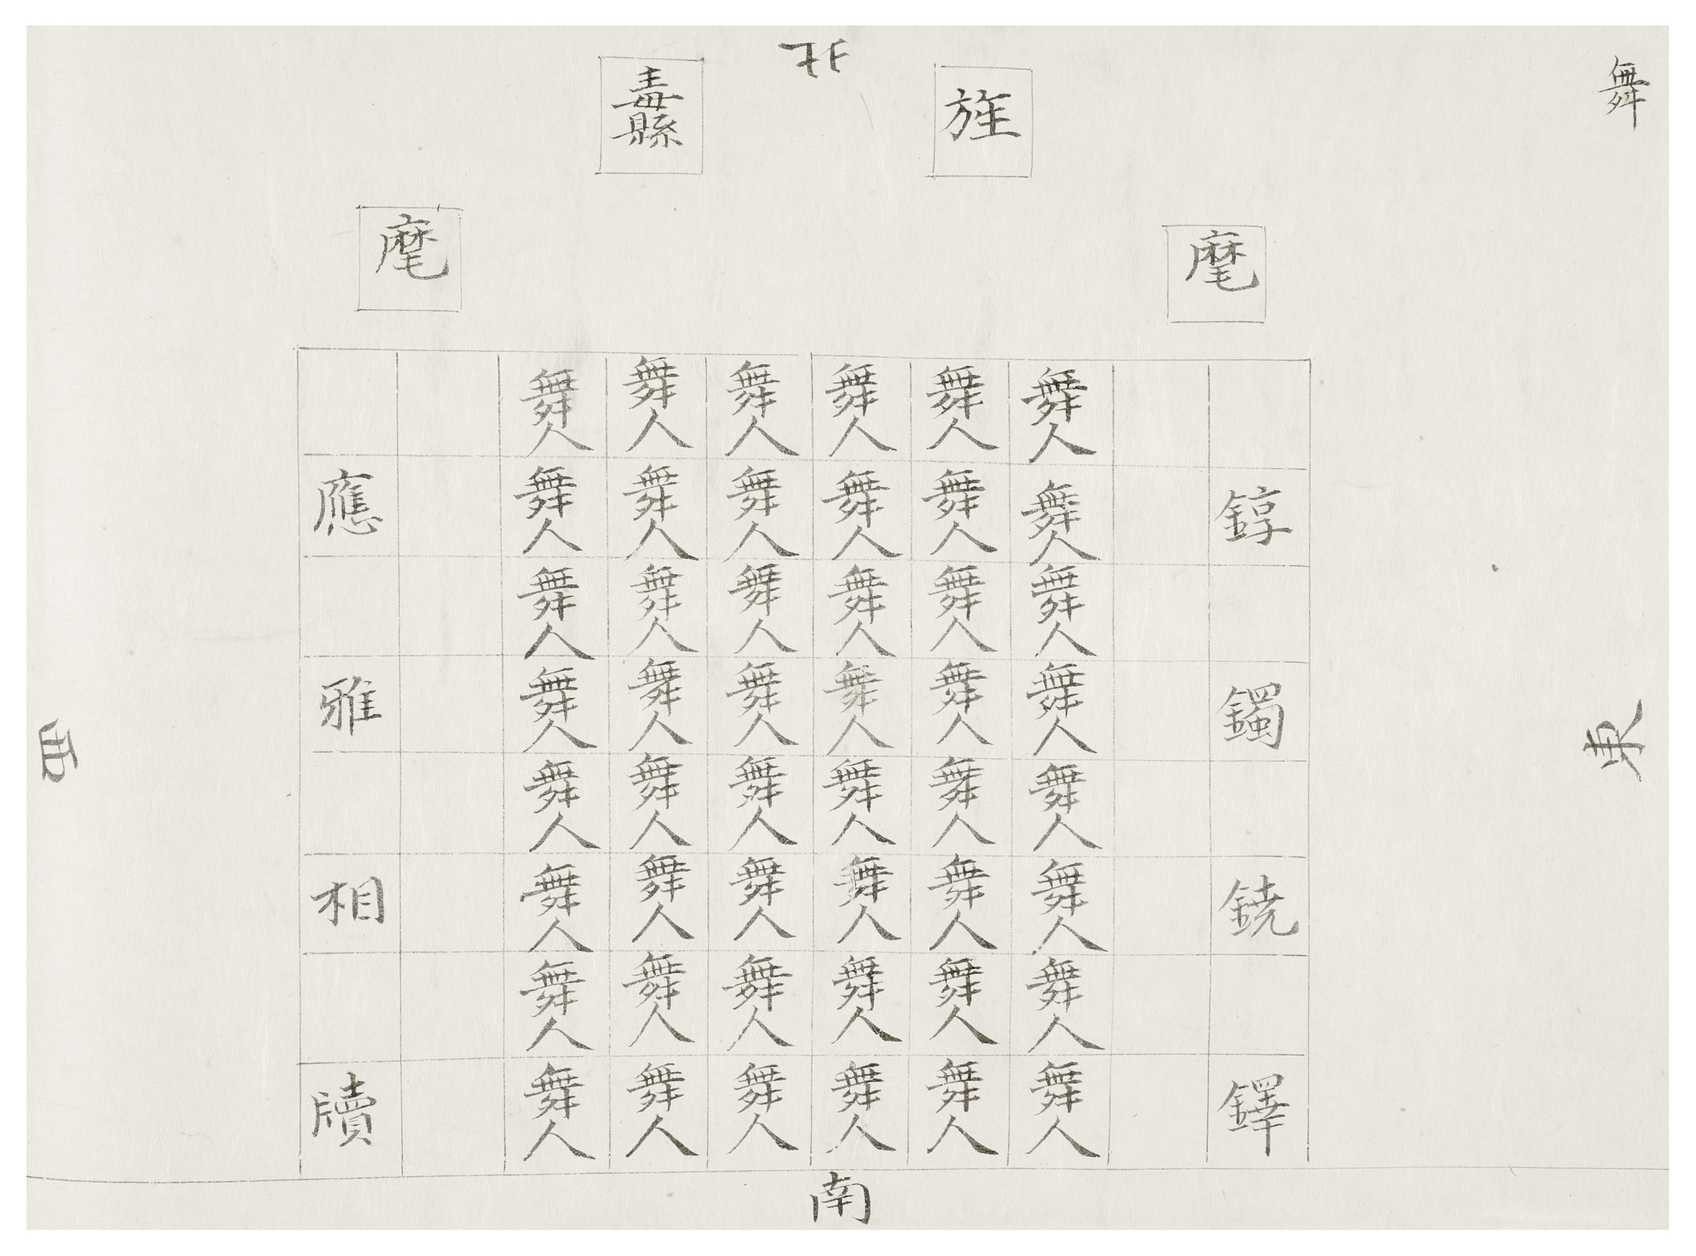 舞
北
纛 旌
麾 麾
舞人 舞人 舞人 舞人 舞人 舞人
應 舞人 舞人 舞人 舞人 舞人 舞人 錞
舞人 舞人 舞人 舞人 舞人 舞人
雅 舞人 舞人 舞人 舞人 舞人 舞人 鐲
舞人 舞人 舞人 舞人 舞人 舞人
相 舞人 舞人 舞人 舞人 舞人 舞人 鐃
舞人 舞人 舞人 舞人 舞人 舞人
牘 舞人 舞人 舞人 舞人 舞人 舞人 鐸
西
東
南